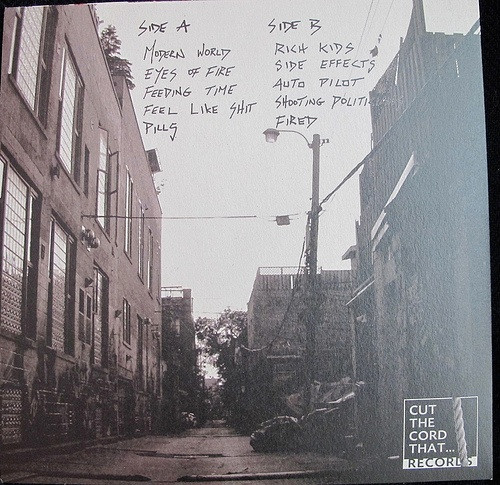 SIDE A
MODERN WORLD
EYES OF FIRE
FEEDING TIME
FEEL LIKE SHIT
PILLS
SIDE B
RICH KIDS
SIDE EFFECTS
AUTO PILOT
SHOOTING POLITI
FIRED
CUT
THE
CORD
THAT...
RECORDS